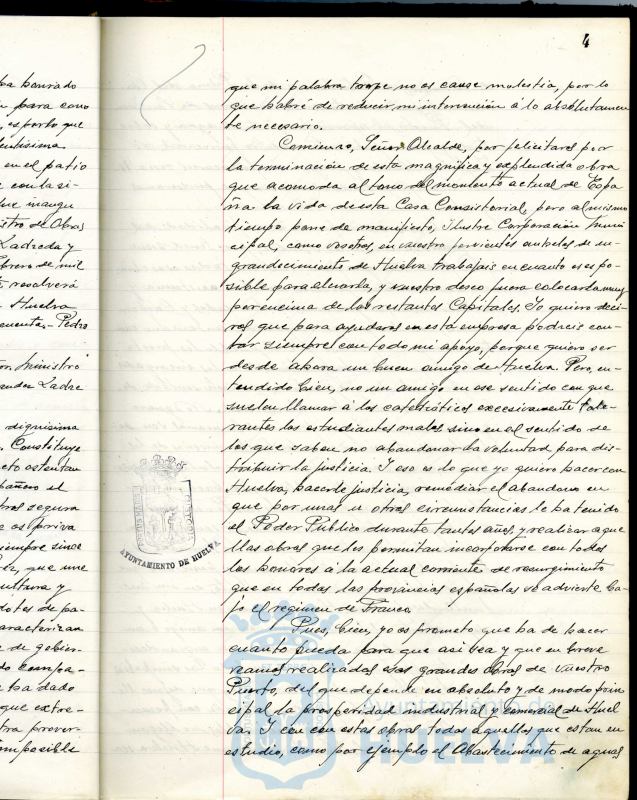 4
ha honrado
para como
esporto que
en el patio
con la si-
que inaugu
istro de Obras
Ladreda y
ebrero de mil
resolverá
Huelva
Pedro
Ministro
ander Ladre
dignisima
Constituye
eto ostentan
pañero el
tros segura
e os priva
siempre since
que une
cultura y
dotes de pa-
aracterizan
de gobier-
do compa-
ha dado
que extre-
tra prover-
imposible
que mi palabra torpe no os cause molestia, por lo
que habré de reducir mi intervención á lo absolutamen
te necesario.
Comienzo, Señor Alcalde, por felicitaros por
la terminación de esta magnifica y esplendida obra
que acomoda al tono del momento actual de Espa
ña la vida de esta Casa Consistorial, pero al mismo
tiempo pone de manifiesto, Ilustre Corporación Muni
cipal, como vosotros, en vuestro fervientes anhelos de en-
grandecimiento de Huelva trabajais en cuanto os es po-
sible para elevarla, y vuestro deseo fuera colocarla muy
por encima de las restantes Capitales. Yo quiero deci-
ros que para ayudaros en esta empresa podreis con-
tar siempre con todo mi apoyo, porque quiero ser
desde ahora un buen amigo de Huelva. Pero, en-
tendido bien, no un amigo en ese sentido con que
suelen llamar á los catedráticos excesivamente tole-
rantes los estudiantes malos sino en el sentido de
los que saben no abandonar la voluntad para dis-
tribuir la justicia. Y eso es lo que yo quiero hacer con
Huelva, hacerle justicia, remediar el abandono en
que por unas u otras circunstancias le ha tenido
el Poder Público durante tantos años, y realizar aque
llas obras que les permitan incorporarse con todos
los honores á la actual corriente de resurgimiento
que en todas las provincias españolas se advierte ba-
jo el regimen de Franco.
Pues, bien, yo os prometo que ha de hacer
cuanto pueda para que asi sea y que en breve
veamos realizadas esas grandes obras de vuestro
Puerto, del que depende en absoluto y de modo prin
cipal la prosperidad industrial y comercial de Huel
va. Y con estas obras todas aquellas que estan en
estudio, como por ejemplo el Abastecimiento de aguas
AYUNTAMIENTO DE HUELVA
Ayuntamiento de
HUELVA